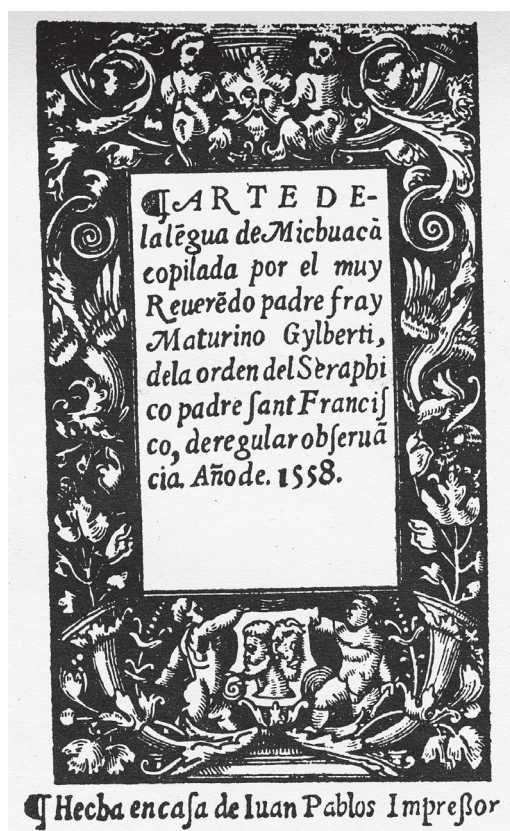 ¶ARTE DE-
la lẽgua de Michuacã
copilada por el muy
Reuerẽdo padre fray
Maturino Gylberti,
dela orden del Seraphi
co padre ſant Franciſ
co, de regular obſeruã
cia. Año de. 1558.
¶ Hecha en caſa de Iuan Pablos Impreßor